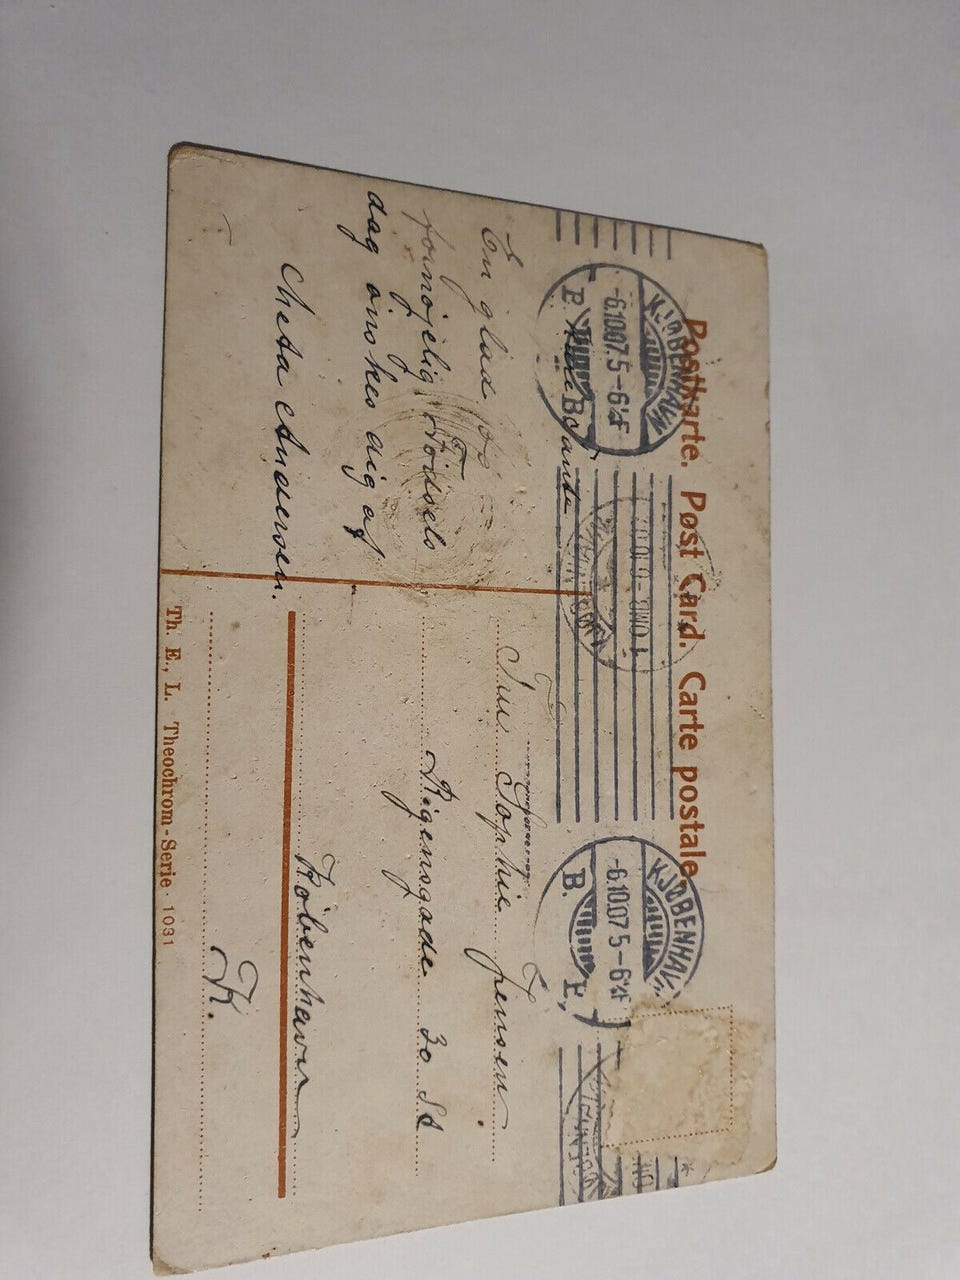 Postkarte. Post Card. Carte postale
KJØBENHAVN
-6.10.07.5-6½F
B.
KJØBENHAVN
-6.10.07.5-6½F
B.
1 OMB
En glad og
fornøjelig Födsels
dag önskes dig af
Meta Andersen.
Sophie Jensen
Rigensgade 30 St
Köbenhavn
K.
Th. E., L. Theochrom-Serie · 1031